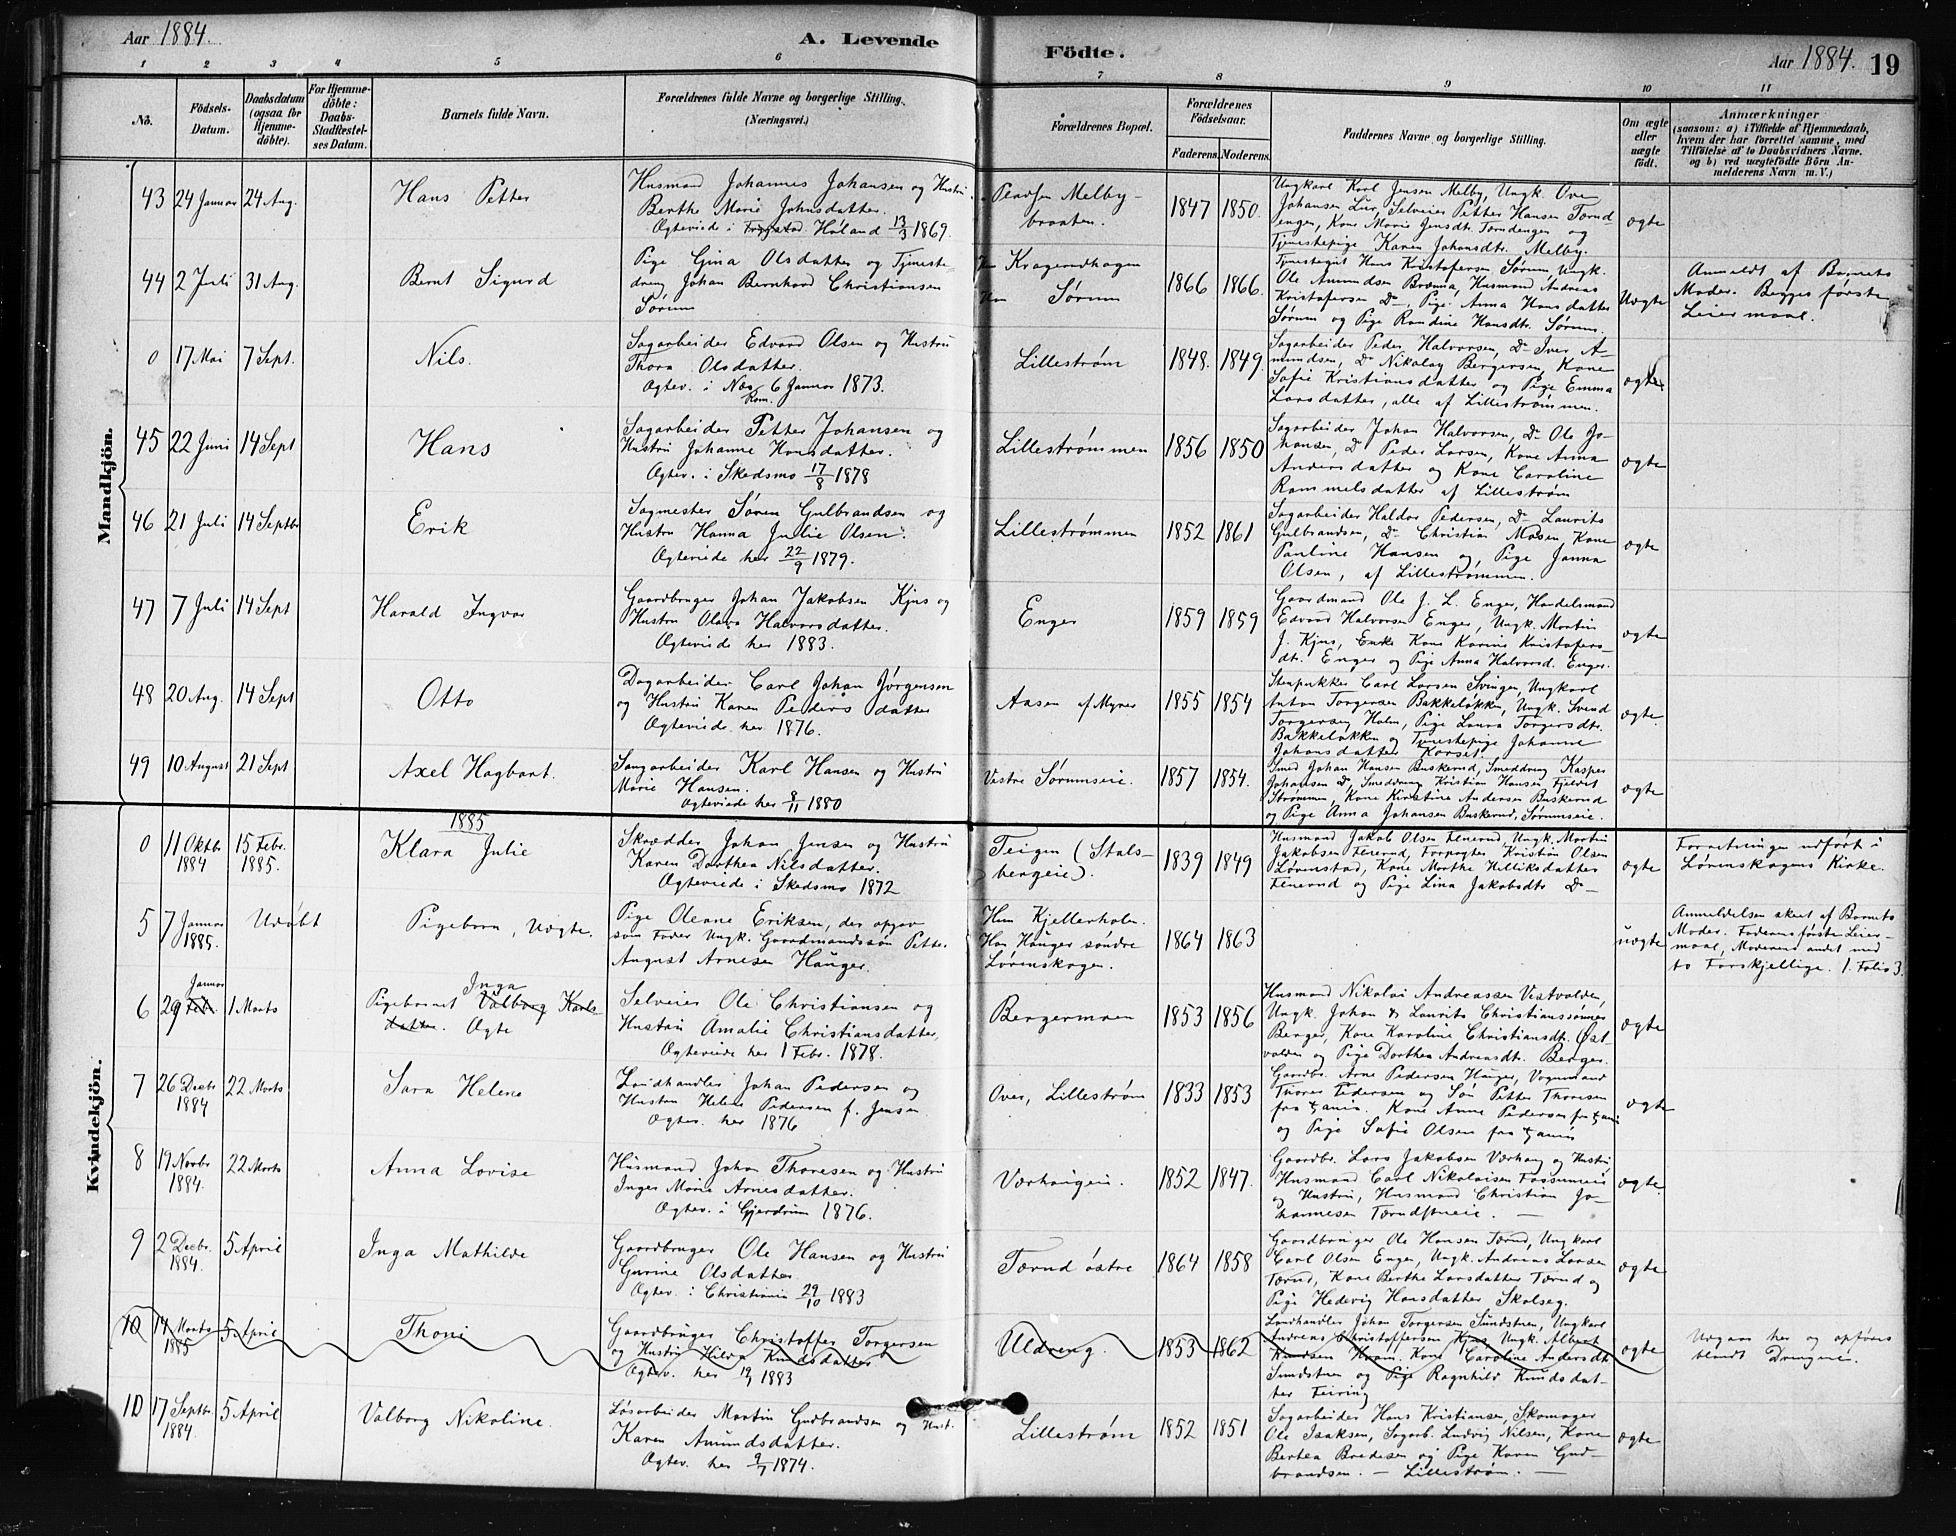 Aar 1884. A. Levende Födte. Aar 1884. 19
1 2 3 4 5 6 7 8 9 10 11
Nô.
Födsels-Datum.
Daabsdatum (ogsaa for Hjemmedöbte).
For Hjemmedöbte: Daabs-Stadfæstelses Datum.
Barnets fulde Navn.
Forældrenes fulde Navne og borgerlige Stilling. (Næringsvei.)
Forældrenes Bopæl.
Forældrenes Födselsaar.
Faderens. Moderens.
Faddernes Navne og borgerlige Stilling.
Om ægte eller uægte födt.
Anmærkninger
(saasom: a) i Tilfælde af Hjemmedaab,
hvem der har forrettet samme, med
Tilföielse af to Daabsvidners Navne.
og b) ved uægtefödte Börn An-
melderens Navn m. V.)
Mandkjön.
43 24 Januar 24 Aug.
Hans Petter
Husmand Johannes Johansen og Hustru
Berthe Marie Johnsdatter.
Ægteviede i Trygstad Høland 13/3 1869.
Melby-
braaten.
1847 1850.
Ungkarl Karl Jensen Melby, Ungk. Ove
Johansen Lur, Selveier Petter Hansen Tærud-
engen, Kone Marie Jensdt. Tærudengen og
Tjenestepige Karen Johansdt. Melby.
ægte
44 2 Juli 31 Aug.
Bernt Sigurd
Pige Gina Olsdatter og Tjeneste-
dreng Johan Bernhard Christiansen
Sørum
Kragerudhagen
Sørum
1866 1866.
Tjenestegut Hans Kristofersen Sørum, Ungk.
Ole Amundsen Bræma, Husmand Andreas
Kristofersen Do, Pige Anna Hansdatter
Sørum og Pige Randine Hansdtr. Sørum.
Uægte
Anmeldt af Barnets
Moder. Begges første
Leiermaal.
0 17 Mai 7 Sept.
Nils.
Sagarbeider Edvard Olsen og Hustru
Thora Olsdatter.
Ægtev. i Næs Rom. 6 Januar 1873.
Lillestrøm
1848. 1849.
Sagarbeider Peder Halvorsen, Do Iver A-
mundsen, Do Nikolay Bergersen, Kone
Sofie Kristiansdatter og Pige Emma
Larsdatter, alle af Lillestrømmen.
ægte
45 22 Juni 14 Sept
Hans
Sagarbeider Petter Johansen og
Hustru Johanne Hansdatter.
Ægtev. i Skedsmo 17/8 1878
Lillestrømmen
1856 1850
Sagarbeider Johan Halvorsen, Do Ole Jo-
hansen, Do Peder Larsen, Kone Anna
Andersdatter og Kone Caroline
Rommelsdatter af Lillestrøm
ægte
46 21 Juli 14 Septbr
Erik
Sagmester Søren Gulbrandsen og
Hustru Hanna Julie Olsen.
Ægteviede her 22/9 1879.
Lillestrømmen
1852 1861
Sagarbeider Haldor Pedersen, Do Laurits
Gulbrandsen, Do Christian Madsen, Kone
Pauline Hansen og Pige Janna
Olsen, af Lillestrømmen.
ægte
47 7 Juli 14 Sept
Harald Ingvar
Gaardbruger Johan Jakobsen Kjus og
Hustru Olava Halvorsdatter.
Ægteviede her 1883.
Enger
1859 1859
Gaardmand Ole J. L. Enger, Handelsmand
Edvard Halvorsen Enger, Ungk. Martin
J. Kjus, Enke Kone Karine Kristofers-
dtr. Enger og Pige Anna Halvorsd. Enger.
ægte
48 20 Aug. 14 Sept
Otto
Dagarbeider Carl Johan Jørgensen
og Hustru Karen Pedersdatter
Ægteviede her 1876.
Aasen af Myrer
1855 1854
Stenpukker Carl Larsen Svingen, Ungkarl
Anton Torgersen Bakkeløkken, Ungk. Svend
Torgersen Holm, Pige Laura Torgersdtr.
Bakkeløkken og Tjenestepige Johanne
Johansdatter Korset.
ægte.
49 10 August 21 Sept
Axel Hagbart.
Saugarbeider Karl Hansen og Hustru
Marie Hansen.
Ægteviede her 8/11 1880
Vestre Sørumseie.
1857 1854.
Smed Johan Hansen Buskerud, Smeddreng Kasper
Johansen Do, Smeddreng Kristian Hansen Fjeldet
Strømmen, Kone Kirstine Andersen Buskerud
og Pige Anna Johansen Buskerud, Sørumseie.
ægte
Kvindekjön.
1885
0 11 Oktbr 1884 15 Febr. 1885.
Klara Julie
Skrædder Johan Jensen og Hustru
Karen Dorthea Nilsdatter.
Ægteviede i Skedsmo 1872
Teigen (Stals-
bergeie).
1839 1849
Husmand Jakob Olsen Fenerud, Ungk. Martin
Jakobsen Fenerud, Forpagter Kristian Olsen
Lørenstad, Kone Marthe Helliksdatter
Fenerud og Pige Lina Jakobsdtr Do
ægte
Forretningen udført i
Lørenskogens Kirke.
5 7 Januar 1885. Udøbt
Pigebarn, Uægte.
Pige Oleane Eriksen, der opgav
som Fader Ungk. Gaardmandssøn Petter
August Arnesen Hauger.
Hun Kjellerholm.
Han Hauger søndre
Lørenskogen.
1864 1863
uægte
Anmeldelsen skeet af Barnets
Moder. Faderens første Leier-
maal, Moderens andet med
to Forskjellige. 1. Folio 3.
6 29 Januar Feb. 1 Marts
Pigebarnet Inga Valborg Karls-
datter. Ægte
Selveier Ole Christiansen og
Hustru Amalie Christiansdatter,
Ægteviede her 1 Febr. 1878.
Bergermoen
1853 1856
Husmand Nikolai Andreassen Vestvolden,
Ungk. Johan & Laurits Christianssønner
Berger, Kone Karoline Christiansdt. Øst-
volden og Pige Dorthea Andreasdt. Berger.
ægte
7 26 Decbr 1884 22 Marts
Sara Helene
Landhandler Johan Pedersen og
Hustru Helene Pedersen f. Jensen
Ægtev. her 1876
Over, Lillestrøm
1833 1853
Gaardbr. Arne Pedersen Hauger, Vognmand
Thores Pedersen og Søn Petter Thoresen
fra Xania. Kone Anne Pedersen fra Xania
og Pige Sofie Olsen fra Xania
ægte
8 19 Novbr 1884. 22 Marts
Anna Lovise
Husmand Johan Thoresen og Hustru
Inger Marie Arnesdatter.
Ægtev. i Gjerdrum 1876.
Værhaugeie.
1852 1847.
Gaardbr. Lars Jakobsen Værhaug og Hustru
Husmand Carl Nikolaisen Fossumeie
og Hustru, Husmand Christian Jo-
hannesen Tærudstueie.
ægte.
9 2 Decbr. 1884. 5 April
Inga Mathilde
Gaardbruger Ole Hansen og Hustru
Gurine Olsdatter
Ægtev. i Christiania 29/10 1883
Tærud østre
1864 1858
Gaardbruger Ole Hansen Tærud, Ungkarl
Carl Olsen Enger, Ungk. Andreas Larsen
Tærud, Kone Berthe Larsdatter Tærud og
Pige Hedevig Hansdatter Skolseg.
ægte
10 14 Marts 1885 5 April
Thoni
Gaardbruger Christoffer Torgersen
og Hustru Hilda Knudsdatter
Ægtev. her 1883
Uldreng.
1853 1862
Landhandler Johan Torgersen Sundsteen, Ungkarl
Andreas Christoffersen Kjus, Ungk. Albert
Knudsen Hvam, Kone Caroline Andersdt.
Sundsteen og Pige Ragnhild Knudsdat-
ter Feiring
ægte
Udgaar her og opføres
blandt Drengene.
10 17 Septbr. 1884. 5 April
Valborg Nikoline.
Løsarbeider Martin Gudbrandsen og Hust.
Karen Amundsdatter.
Ægtev. her 9/7 1874.
Lillestrøm
1852 1851
Sagarbeider Hans Kristiansen, Skomager
Ole Isaksen, Sagarb. Ludvig Nilsen, Kone
Berthea Bredesen og Pige Karen Gud-
brandsen. — Lillestrøm. —
ægte